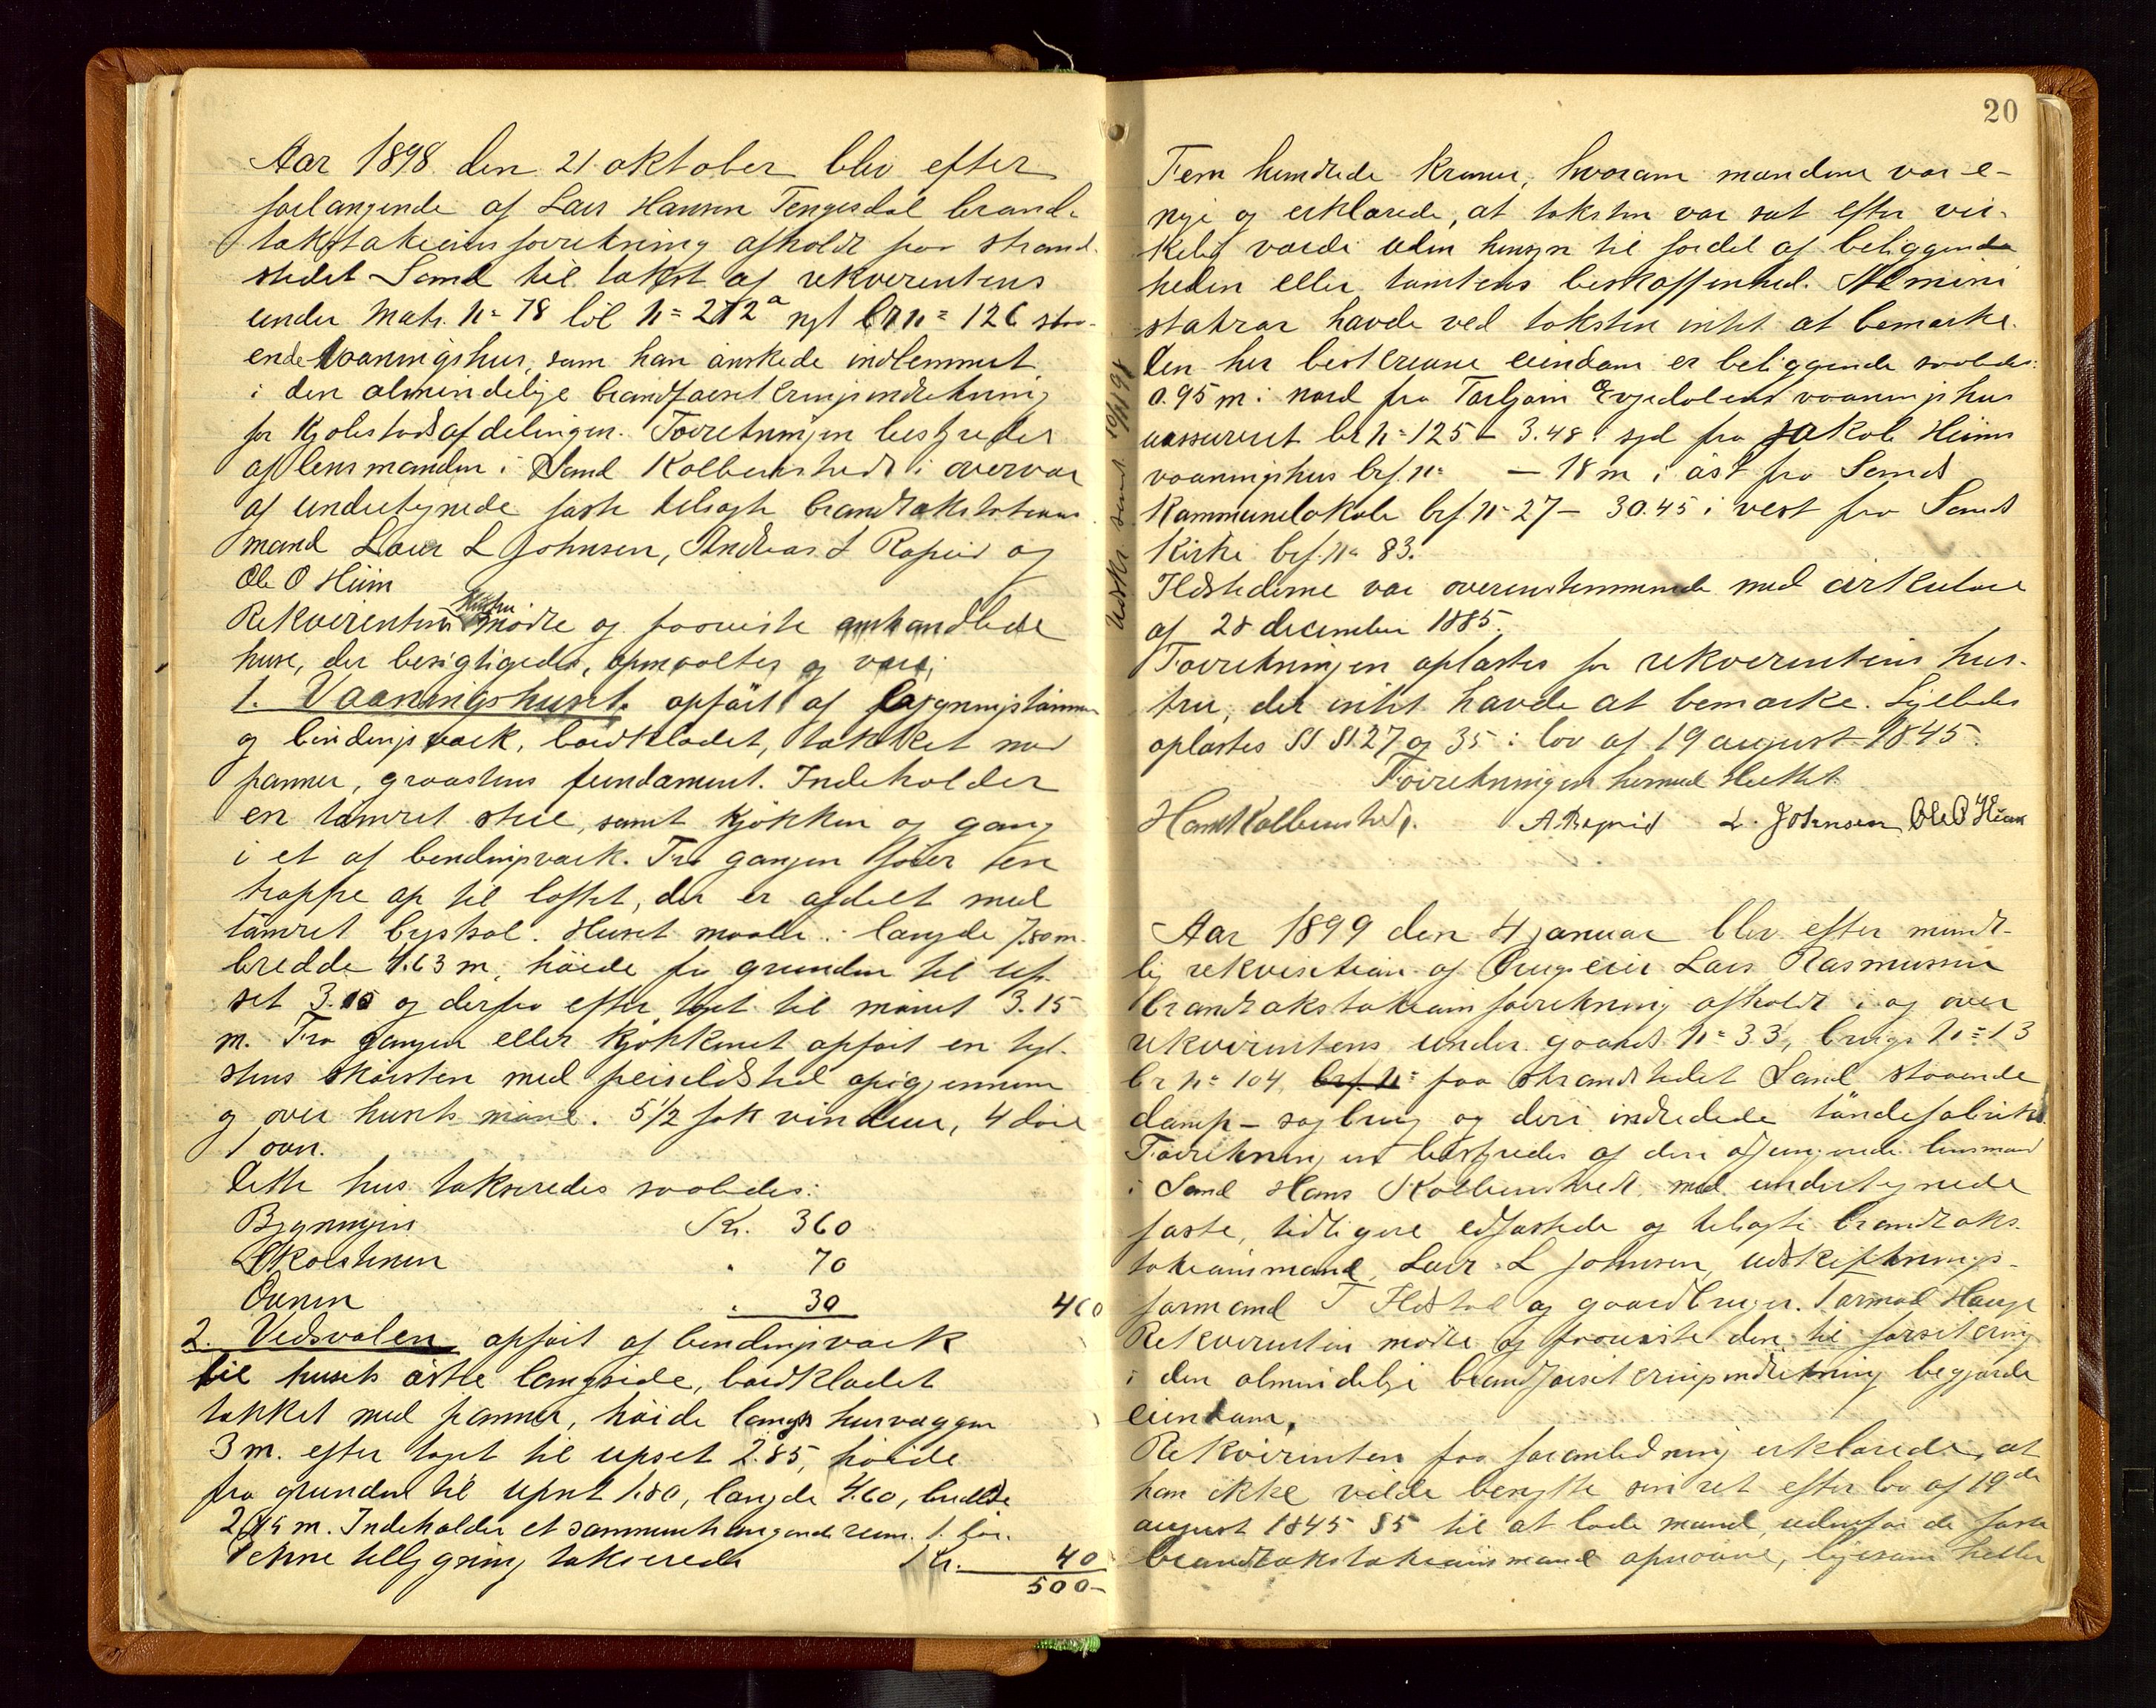 Aar 1898 den 21 oktober blev efter
forlangende af Lars Hansen Tengesdal brand-
takstationsforretning afholdt paa strand-
stedet Sand til takst af rekverentens
under Matr. No 78 löb No 212a nyt br No 126 staa-
ende vaaningshus, som han önskede indlemmet
i den almindelige brandforsikringsindretning
for Kjöbstadsafdelingen. Forretningen bestyredes
af lensmanden i Sand Kolbenstvedt i overvær
af undertegnede faste tilsagte brandtakstations
mænd Lars L Johnsen, Andreas L Rapeid og
Ole O Hiim
Rekverentens Hustru mödte og paaviste omhandlede
huse, der besigtigedes, opmaaltes og vare:
1. Vaaningshuset. opfört af bygningstömmer
og bindingsværk, bordklædet, tækket med
panner, graastens fundament. Indeholder
en tömret stue, samt kjökken og gang
i et af bindingsværk. Fra gangen förer en
trappe op til loftet, der er afdelt med
tömret bystal. Huset maaler: længde 7.80 m.
bredde 4.63 m, höide fra grunden til up-
set 3.15 og derfra efter taget til mönet 3.15
m. Fra gangen eller kjökkenet opfört en tegl-
stens skorsten med peisildsted opigjennem
og over husets möne. 5 1/2 fak vinduer, 4 döre
1 ovn.
Dette hus takseredes saaledes:
Bygningen Kr. 360
Skorstenen " 70
Ovnen " 30 460
2. Vedsvalen opfört af bindingsværk
til husets östre langside, bordklædet
tækket med panner, höide langs husvæggen
3 m. efter taget til upset 2.85, höide
fra grunden til upset 1.80, længde 4.60, bredde
2.45 m. Indeholder et sammenhængende rum. 1 dör.
Denne tilbygning takseredes Kr. 40
500-
20
Udskr. sendt 10/11 1898
Fem hundrede kroner, hvorom mændene var e-
nige og erklærede, at taksten var sat efter vir-
kelig værdi uden hensyn til fordel af beliggenda
heden eller tomtens beskaffenhed. Admini
strator havde ved taksten intet at bemærke.
Den her beskrevne eiendom er beliggende saaledes:
0.95 m. i nord fra Torbjörn Evjedalens vaaningshus
uassureret br No 125 - 3.48 i syd fra Jakob Hiims
vaaningshus brf. No - 18 m i öst fra Sands
Kommunelokale brf. No 27 - 30.45 i vest fra Sands
Kirke brf. No 83.
Ildstederne var overensstemmende med cirkulære
af 28 december 1885.
Forretningen oplæstes for rekverentens hus-
tru, der intet havde at bemærke. Ligeledes
oplæstes §§ 27 og 35 i lov af 19 august 1845.
Forretningen hermed sluttet
Hans Kolbenstvedt. A. Rapeid L. Johnsen Ole O Hiim
Aar 1899 den 4 januar blev efter mundt-
lig rekvisition af Brugseier Lars Rasmussen
brandtakstationsforretning afholdt i og over
rekvirentens under gaards No 33, brugs No 13
br No 104, brf. No paa strandstedet Sand staaende
damp-sagbrug og deri indredede töndefabrik
Forretningen bestyredes af den adjungerede lensmand
i Sand Hans Kolbenstvedt med undertegnede
faste, tidligere edfæstede og tilsagte brandtaks-
takstationsmænd, Lars L Johnsen, udskiftnings-
formand T Ildstad og gaardbruger Tormod Hauge
Rekverenten mödte og paaviste den til forsikring
i den almindelige brandforsikringsindretning begjærede
eiendom.
Rekvirenten paa foranledning erklærede, at
han ikke vilde benytte sin ret efter lov af 19de
august 1845 § 5 til at lade mænd udenfor de faste
brandtakstationsmænd opnævne, ligesom heller